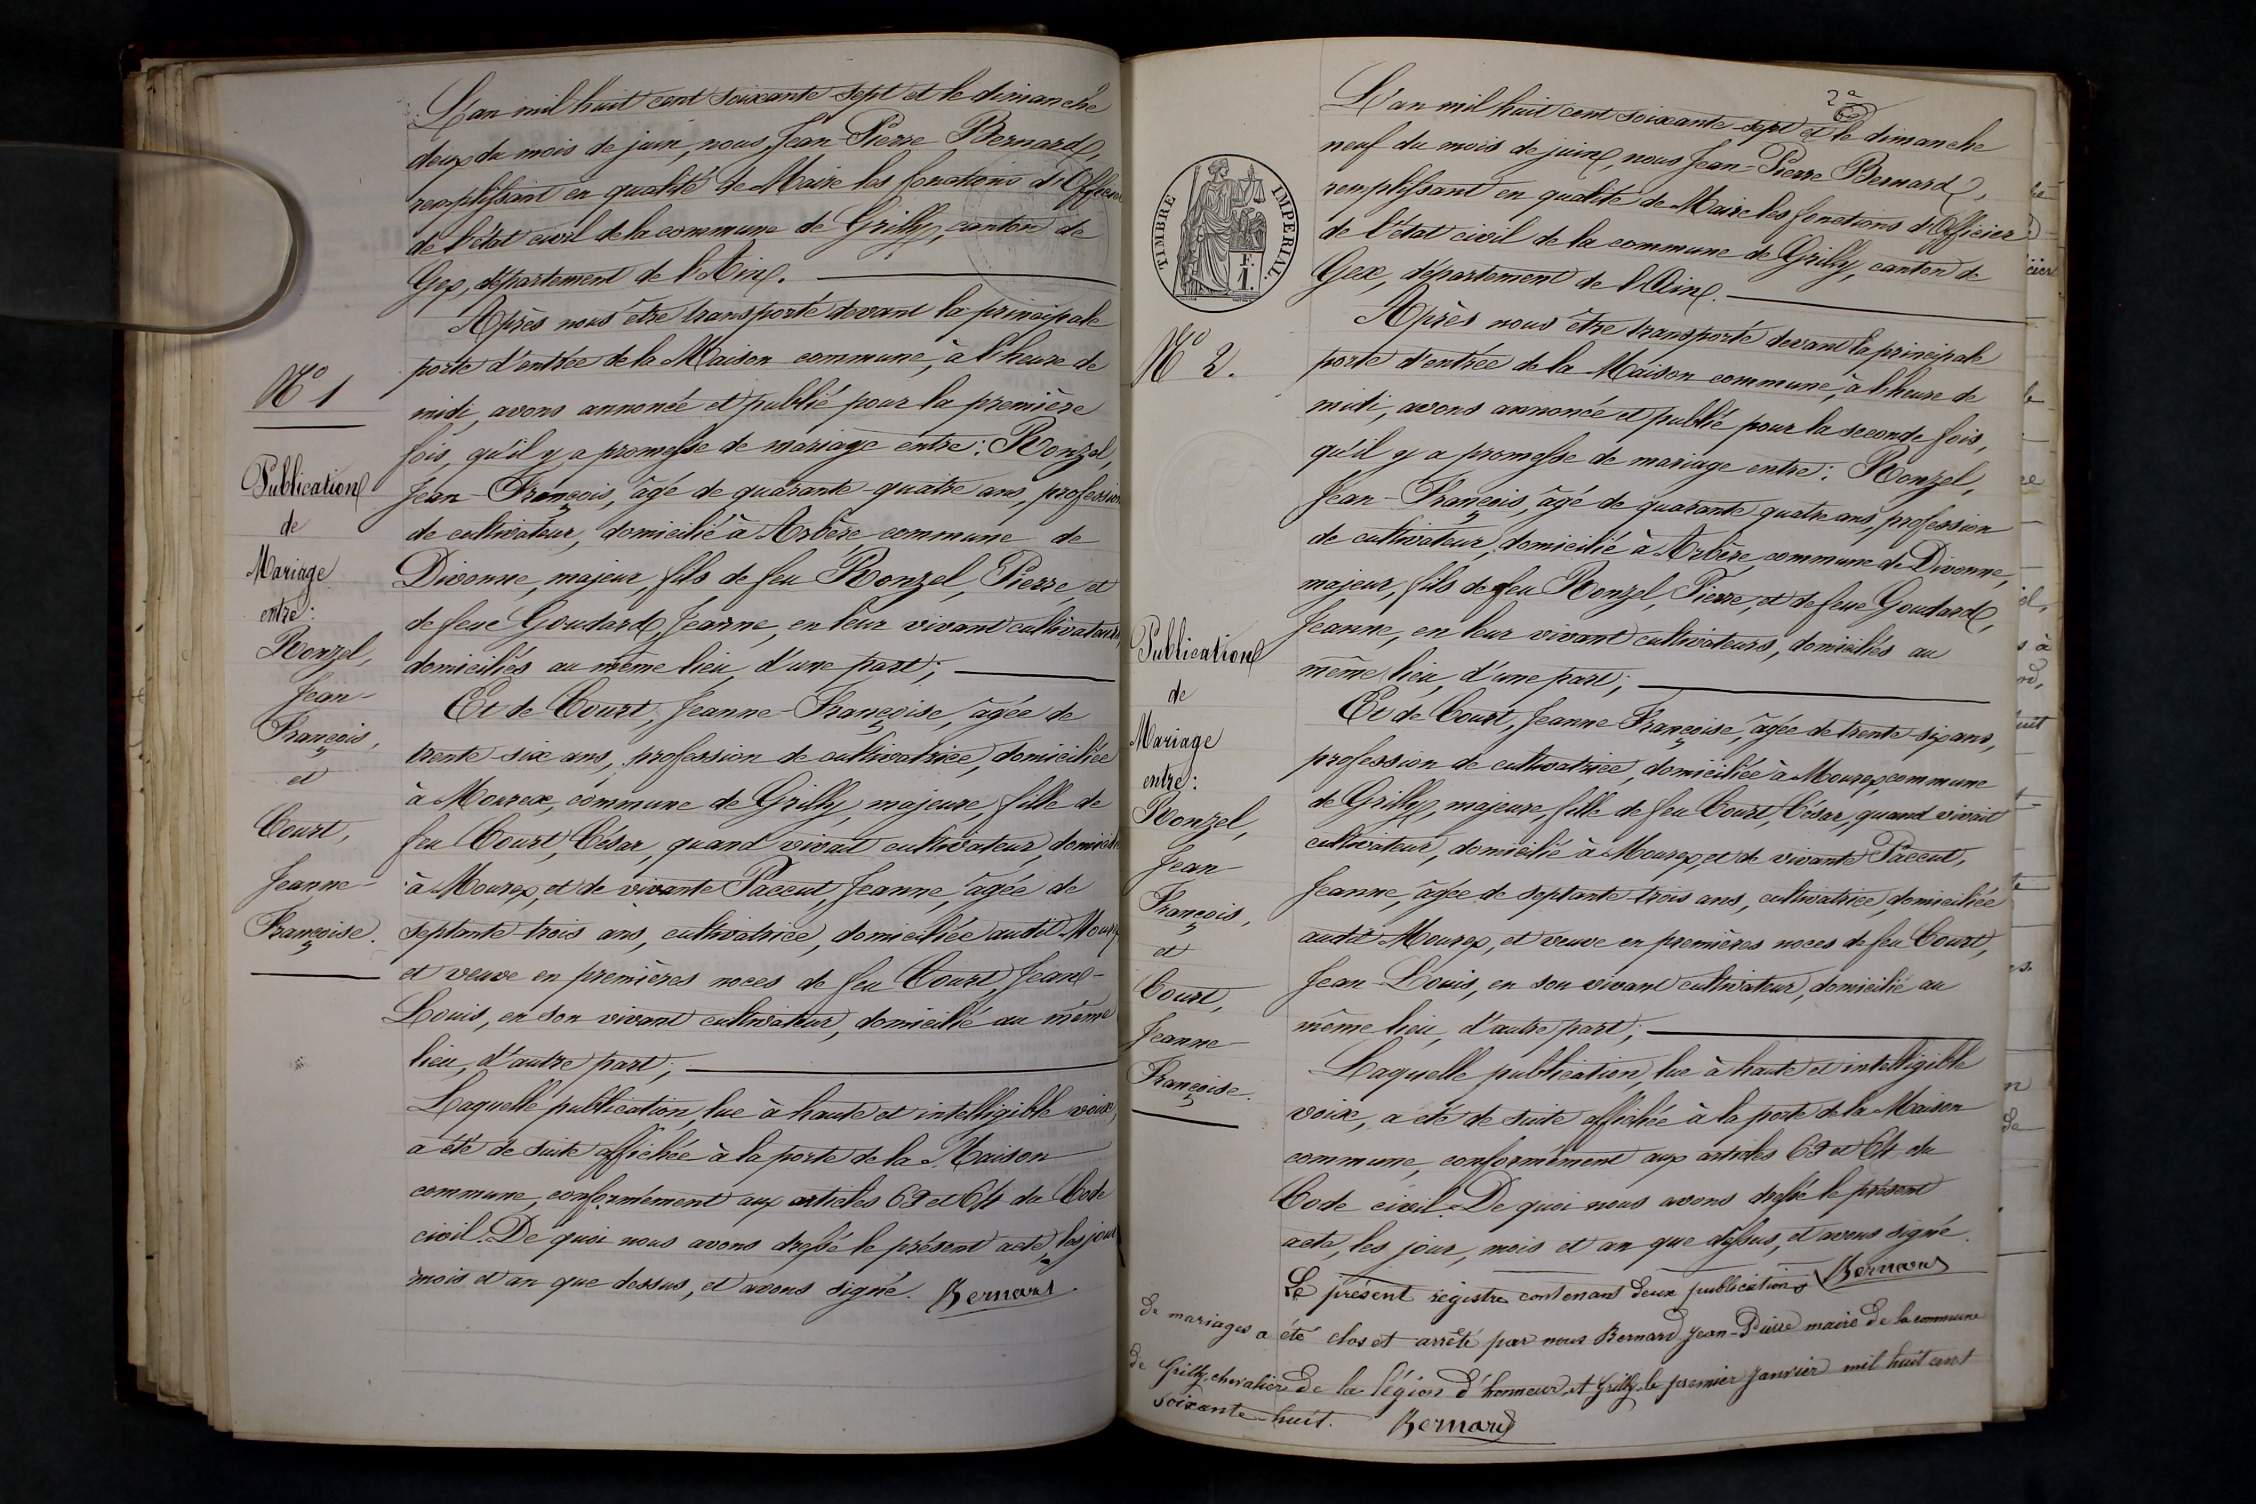 L'an mil huit cent soixante-sept et le dimanche
deux du mois de juin, nous Jean-Pierre Bernard,
remplissant en qualité de Maire les fonctions d'Officier
de l'état civil de la commune de Grilly, canton de
Gex, département de l'Ain.
Après nous être transporté devant la principale
porte d'entrée de la Maison commune, à l'heure de
midi, avons annoncé et publié pour la première
fois, qu'il y a promesse de mariage entre: Ronzel,
Jean-François, âgé de quarante-quatre ans, profession
de cultivateur, domicilié à Arbère commune de
Divonne, majeur, fils de feu Ronzel, Pierre, et
de feue Goudard, Jeanne, en leur vivant cultivateurs,
domiciliés au même lieu, d'une part;
Et de Court, Jeanne-Françoise, âgée de
trente-six ans, profession de cultivatrice, domiciliée
à Mourex, commune de Grilly, majeure, fille de
feu Court, César, quand vivait cultivateur, domicilié
à Mourex, et de vivante Paccut, Jeanne, âgée de
septante-trois ans, cultivatrice, domiciliée audit Mourex
et veuve en premières noces de feu Court, Jean-
Louis, en son vivant cultivateur, domicilié au même
lieu, d'autre part;
Laquelle publication, lue à haute et intelligible voix,
a été de suite affichée à la porte de la Maison
commune, conformément aux articles 63 et 64 du Code
civil. De quoi nous avons dressé le présent acte, les jour
mois et an que dessus, et avons signé. Bernard
N° 1
Publication
de
Mariage
entre:
Ronzel,
Jean-
François,
et
Court,
Jeanne-
Françoise.
2e
L'an mil huit cent soixante-sept et le dimanche
neuf du mois de juin, nous Jean-Pierre Bernard,
remplissant en qualité de Maire les fonctions d'Officier
de l'état civil de la commune de Grilly, canton de
Gex, département de l'Ain.
Après nous être transporté devant la principale
porte d'entrée de la Maison commune, à l'heure de
midi, avons annoncé et publié pour la seconde fois,
qu'il y a promesse de mariage entre: Ronzel,
Jean-François, âgé de quarante quatre ans, profession
de cultivateur, domicilié à Arbère, commune de Divonne,
majeur, fils de feu Ronzel, Pierre, et de feue Goudard,
Jeanne, en leur vivant cultivateurs, domiciliés au
même lieu, d'une part;
Et de Court, Jeanne Françoise, âgée de trente-six ans,
profession de cultivatrice, domiciliée à Mourex, commune
de Grilly, majeure, fille de feu Court, César, quand vivait
cultivateur, domicilié à Mourex, et de vivante Paccut,
Jeanne, âgée de septante-trois ans, cultivatrice, domiciliée
audit Mourex, et veuve en premières noces de feu Court,
Jean-Louis, en son vivant cultivateur, domicilié au
même lieu, d'autre part;
Laquelle publication, lue à haute et intelligible
voix, a été de suite affichée à la porte de la Maison
commune, conformément aux articles 63 et 64 du
Code civil. De quoi nous avons dressé le présent
acte, les jour, mois et an que dessus, et avons signé.
Bernard
Le présent registre contenant deux publications
de mariages a été clos et arrêté par nous Bernard Jean-Pierre maire de la commune
de Grilly, chevalier de la légion d'honneur, et Grilly le premier janvier mil huit cent
soixante-huit. Bernard
TIMBRE IMPERIAL
F.
I.
N° 2.
Publication
de
Mariage
entre:
Ronzel,
Jean
François,
et
Court,
Jeanne
Françoise.